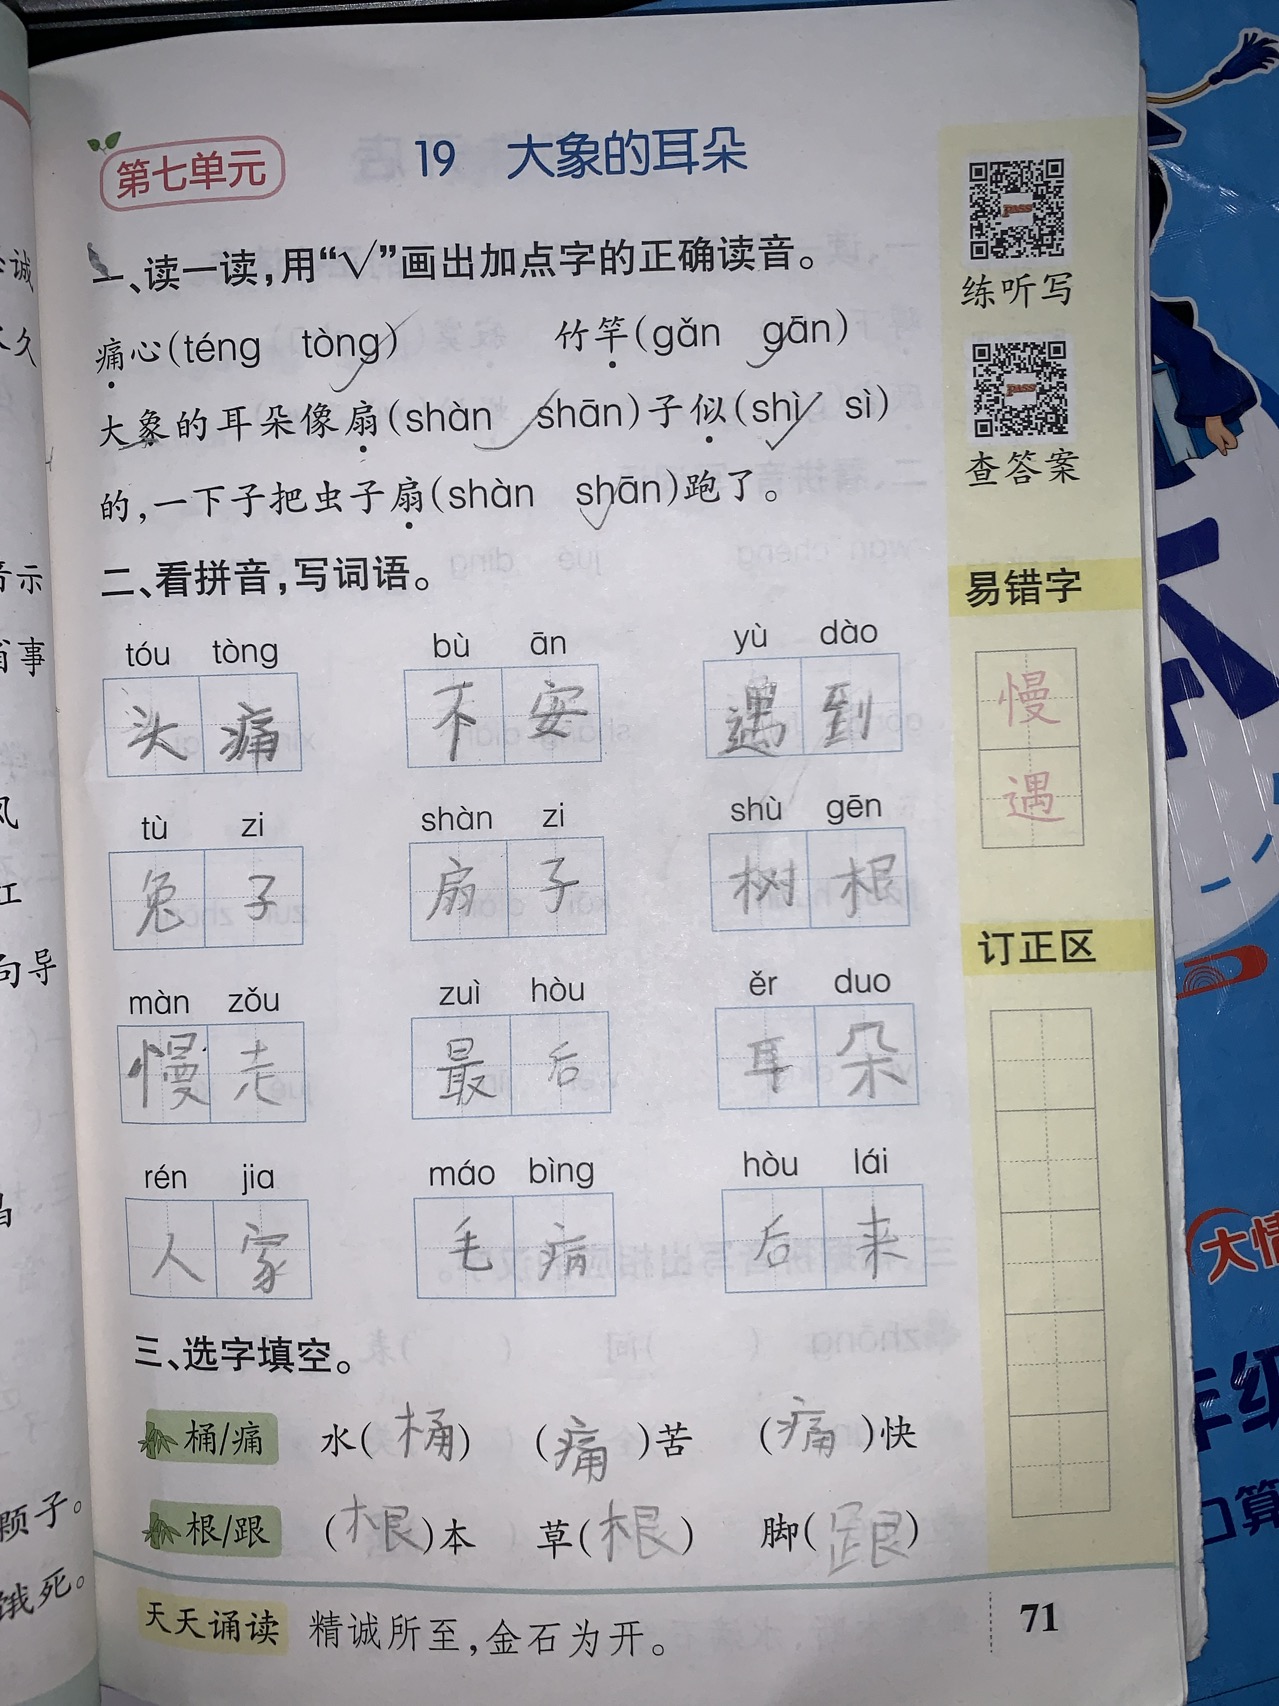 第七单元
19 大象的耳朵
一、读一读,用“√”画出加点字的正确读音。
痛心(téng tòng) 竹竿(gǎn gān)
大象的耳朵像扇(shàn shān)子似(shì sì)
的,一下子把虫子扇(shàn shān)跑了。
二、看拼音,写词语。
tóu tòng bù ān yù dào
头痛 不安 遇到
tù zi shàn zi shù gēn
兔子 扇子 树根
màn zǒu zuì hòu ěr duo
慢走 最后 耳朵
rén jia máo bìng hòu lái
人家 毛病 后来
三、选字填空。
桶/痛 水(桶) (痛)苦 (痛)快
根/跟 (根)本 草(根) 脚(跟)
天天诵读 精诚所至,金石为开。
71
PASS
练听写
PASS
查答案
易错字
慢
遇
订正区
诚
久
示
事
风
江
句导
颗子。
饿死。
大情
年级
口算